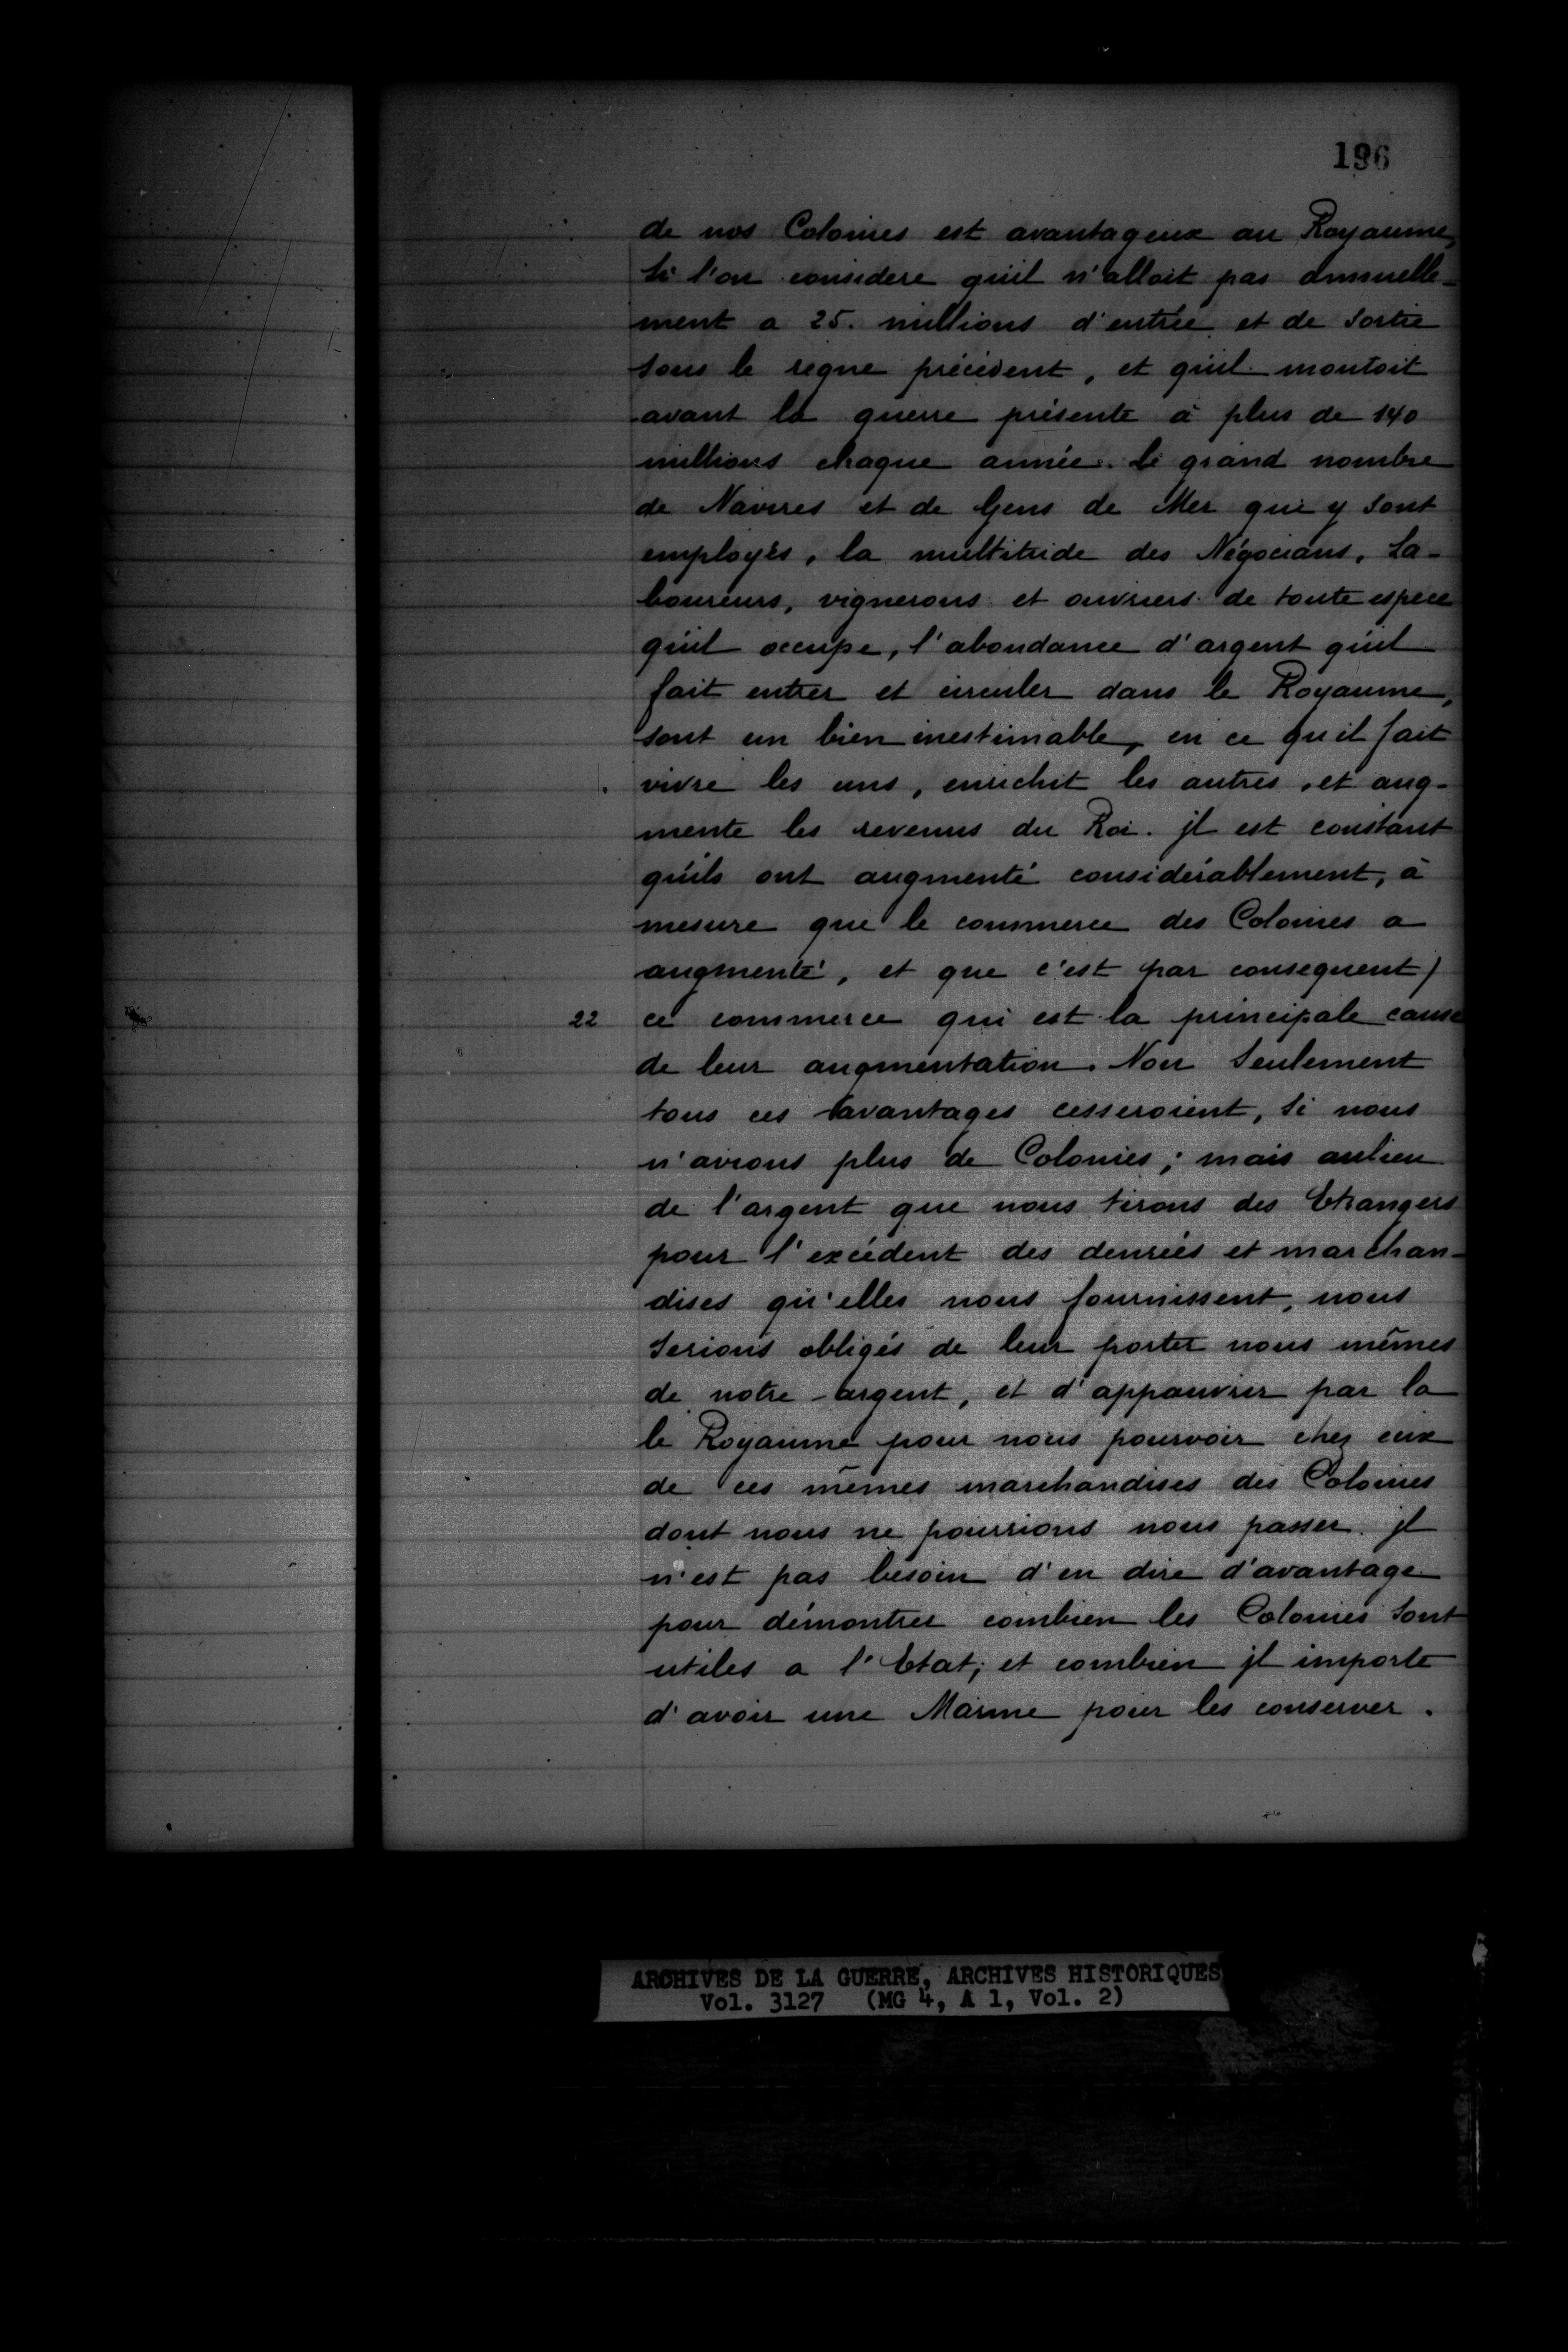 196
de nos Colonies est avantageux au Royaume,
Si l'on considere qu'il n'alloit pas annuelle-
ment a 25. millions d'entrée et de Sortie
Sous le regne précédent, et qu'il montoit
avant la guerre présente à plus de 140
millions chaque année. le grand nombre
de Navires et de Gens de Mer qui y Sont
employés, la multitude des Négocians, La-
boureurs, vignerons et ouvriers de toute espece
qu'il occupe, l'abondance d'argent qu'il
fait entrer et circuler dans le Royaume,
Sont un bien inestimable, en ce qu'il fait
vivre les uns, enrichit les autres, et aug-
mente les revenus du Roi. jl est constant
qu'ils ont augmenté considérablement, à
mesure que le commerce des Colonies a
augmenté, et que c'est par consequent /
22 ce commerce qui est la principale cause
de leur augmentation. Non Seulement
tous ces avantages cesseroient, Si nous
n'avions plus de Colonies; mais aulieu
de l'argent que nous tirons des Etrangers
pour l'excédent des denrées et marchan-
dises qu'elles nous fournissent, nous
Serions obligés de leur porter nous mêmes
de notre argent, et d'appauvrir par la
le Royaume pour nous pourvoir chez eux
de ces mêmes marchandises des Colonies
dont nous ne pourrions nous passer. jl
n'est pas besoin d'en dire d'avantage
pour démontrer combien les Colonies Sont
utiles a l'Etat; et combien jl importe
d'avoir une Marine pour les conserver.
ARCHIVES DE LA GUERRE, ARCHIVES HISTORIQUES
Vol. 3127 (MG 4, A 1, Vol. 2)